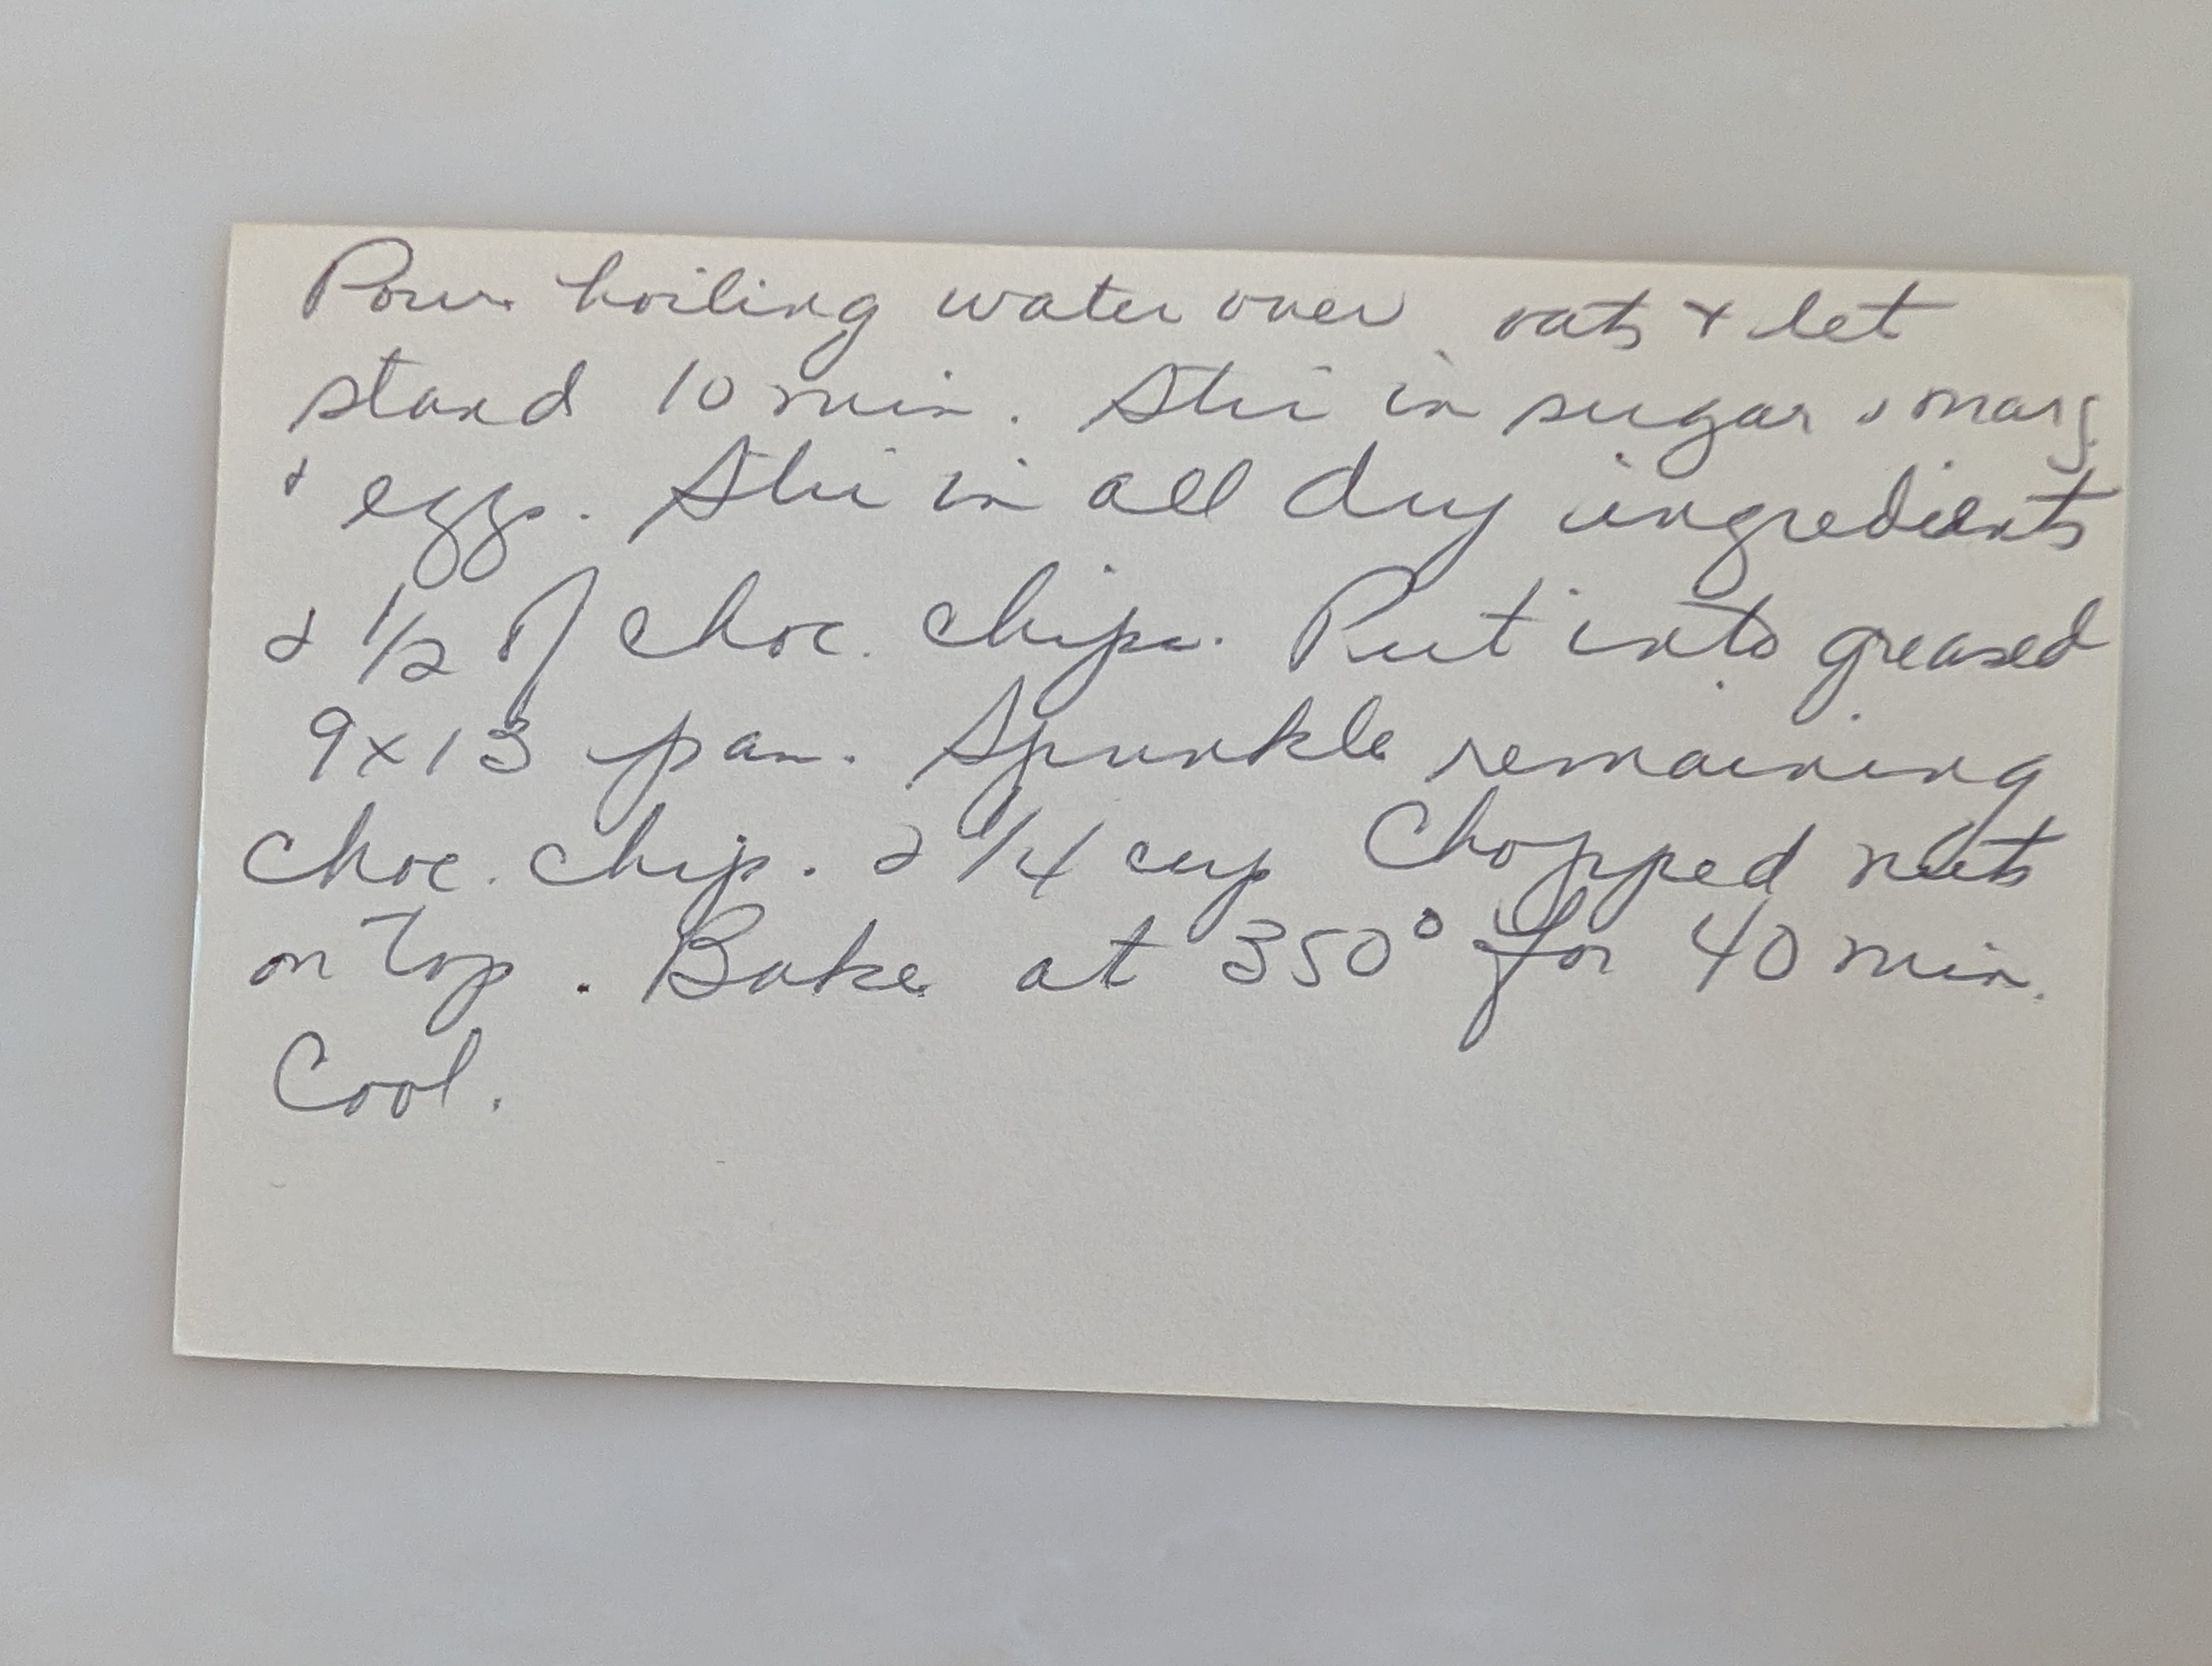 Pour boiling water over oats & let
stand 10 min. Stir in sugar & marg
& eggs. Stir in all dry ingredients
& 1/2 of choc. chips. Put into greased
9x13 pan. Sprinkle remaining
choc. chip. & 1/4 cup Chopped nuts
on top. Bake at 350° for 40 min.
Cool.